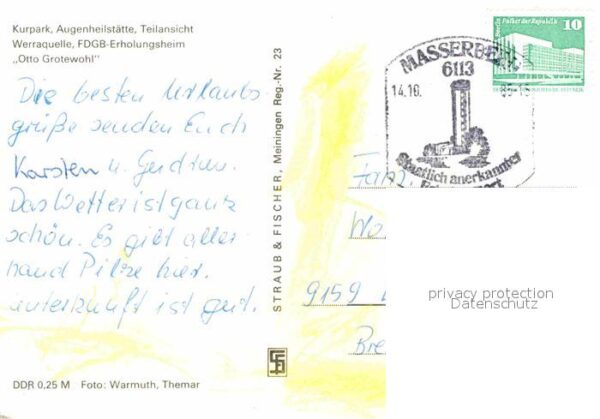 Kurpark, Augenheilstätte, Teilansicht
Werraquelle, FDGB-Erholungsheim
„Otto Grotewohl"
Die besten Urlaubs
grüße senden Euch
Karsten u. Gudrun.
Das Wetter ist ganz
schön. Es gibt aller
hand Pilze hier.
unterkunft ist gut.
DDR 0,25 M Foto: Warmuth, Themar
STRAUB & FISCHER, Meiningen Reg.-Nr. 23
MASSERBERG
6113
14.10.
Staatlich anerkannter
Berlin Palast der Republik
10
Fam.
9159
privacy protection
Datenschutz